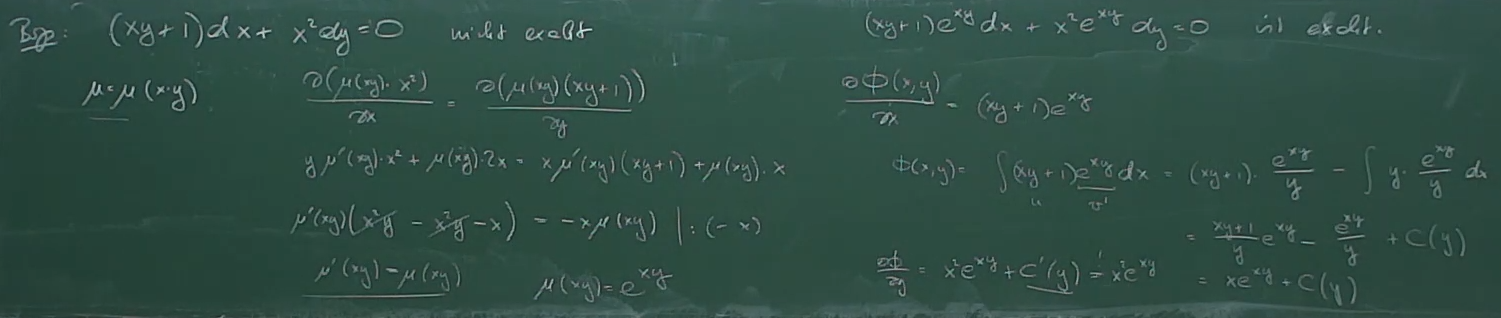 Bsp: (xy+1)dx + x²dy=0 nicht exakt
μ=μ(x·y)
∂(μ(xy)·x²)/∂x = ∂(μ(xy)(xy+1))/∂y
y μ'(xy)·x² + μ(xy)·2x = x μ'(xy)(xy+1) + μ(xy)·x
μ'(xy)(x²y - x²y - x) = -x μ(xy) |:(-x)
μ'(xy) = μ(xy) μ(xy) = e^{xy}
(xy+1)e^{xy} dx + x²e^{xy} dy=0 ist exakt.
∂Φ(x,y)/∂x = (xy+1)e^{xy}
Φ(x,y) = ∫(xy+1)e^{xy} dx = (xy+1)· e^{xy}/y - ∫ y· e^{xy}/y dx
u v'
= (xy+1)/y e^{xy} - e^{xy}/y + C(y)
= xe^{xy} + C(y)
∂Φ/∂y = x²e^{xy} + C'(y) != x²e^{xy}